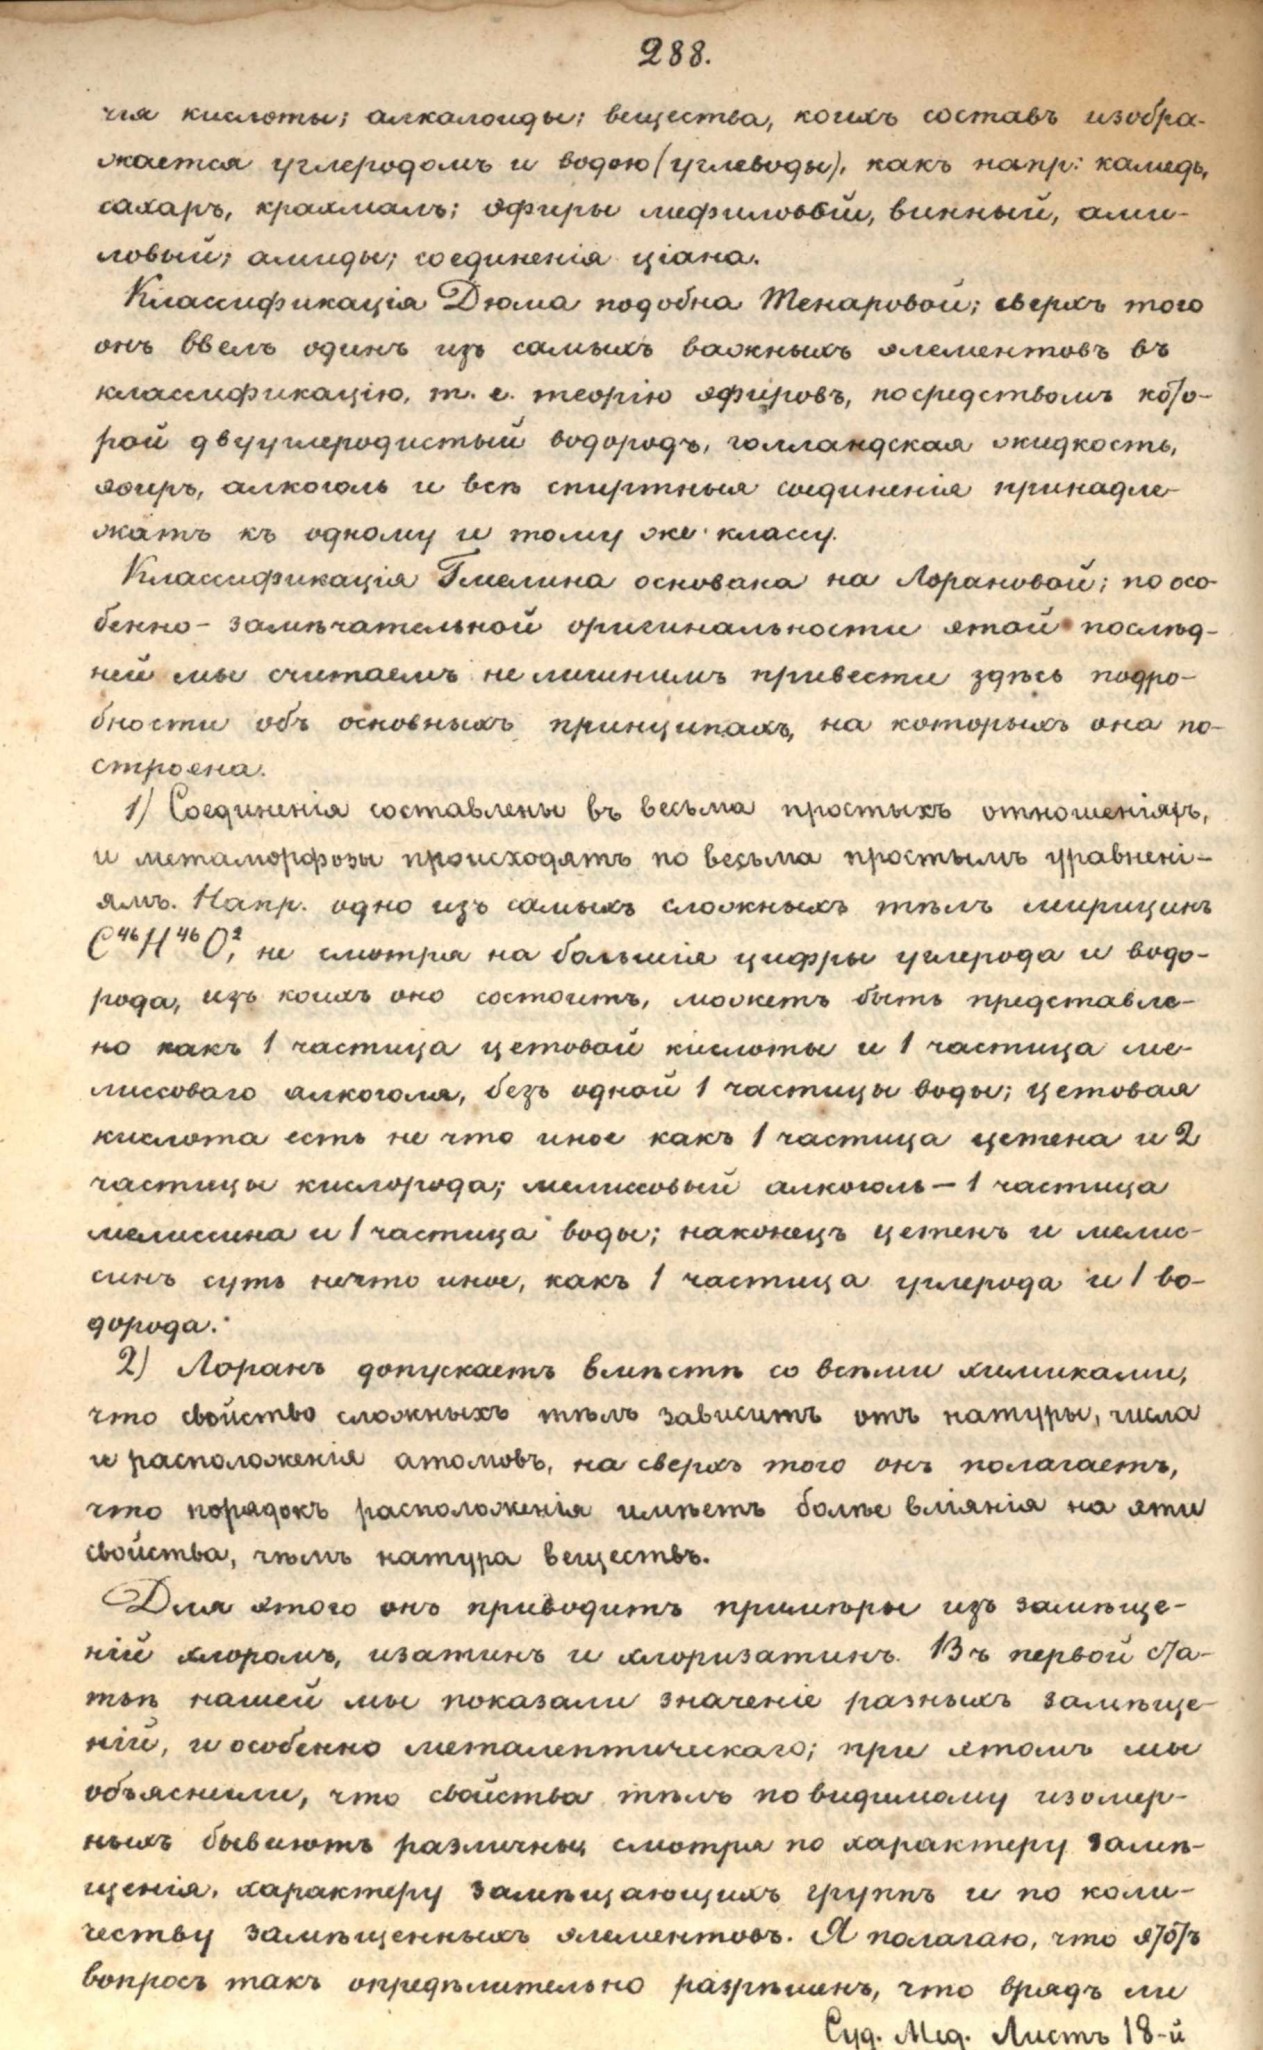 288.
чія кислоты; алкалоиды; вещества, коихъ составъ изобра-
жается углеродомъ и водою (углеводы), какъ напр: камедь,
сахаръ, крахмалъ; эфиры мефиловый, винный, ами-
ловый; амиды; соединенія ціана.
Классификація Дюма подобна Тенаровой; сверхъ того
онъ ввелъ одинъ изъ самыхъ важныхъ элементовъ въ
классификацію, т. е. теорію эфировъ, посредствомъ кото-
рой двууглеродистый водородъ, голландская жидкость,
эфиръ, алкоголь и всѣ спиртныя соединенія принадле-
жатъ къ одному и тому же классу.
Классификація Гмелина основана на Лорановой; по осо-
бенно-замѣчательной оригинальности этой послѣд-
ней мы считаемъ не лишнимъ привести здѣсь подро-
бности объ основныхъ принципахъ, на которыхъ она по-
строена.
1) Соединенія составлены въ весьма простыхъ отношеніяхъ,
и метаморфозы происходятъ по весьма простымъ уравнені-
ямъ. Напр. одно изъ самыхъ сложныхъ тѣлъ мирицинъ
C⁴⁶H⁴⁶O², не смотря на большія цифры углерода и водо-
рода, изъ коихъ оно состоитъ, можетъ быть представле-
но какъ 1 частица цетовой кислоты и 1 частица ме-
лиссоваго алкоголя, безъ одной 1 частицы воды; цетовая
кислота есть не что иное какъ 1 частица цетена и 2
частицы кислорода; мелиссовый алкоголь — 1 частица
мелиссина и 1 частица воды; наконецъ цетенъ и мелис-
синъ суть нечто иное, какъ 1 частица углерода и 1 во-
дорода.
2) Лоранъ допускаетъ вмѣстѣ со всѣми химиками,
что свойство сложныхъ тѣлъ зависитъ отъ натуры, числа
и расположенія атомовъ, на сверхъ того онъ полагаетъ,
что порядокъ расположенія имѣетъ болѣе вліянія на эти
свойства, чѣмъ натура веществъ.
Для этого онъ приводитъ примѣры изъ замѣще-
ній хлоромъ, изатинъ и хлоризатинъ. Въ первой ста-
тьѣ нашей мы показали значеніе разныхъ замѣще-
ній, и особенно металептическаго; при этомъ мы
объяснили, что свойства тѣлъ повидимому изомер-
ныхъ бываютъ различны, смотря по характеру замѣ-
щенія, характеру замѣщающихъ группъ и по коли-
честву замѣщенныхъ элементовъ. Я полагаю, что этотъ
вопросъ такъ опредѣлительно разрѣшенъ, что врядъ ли
Суд. Мед. Листъ 18-й